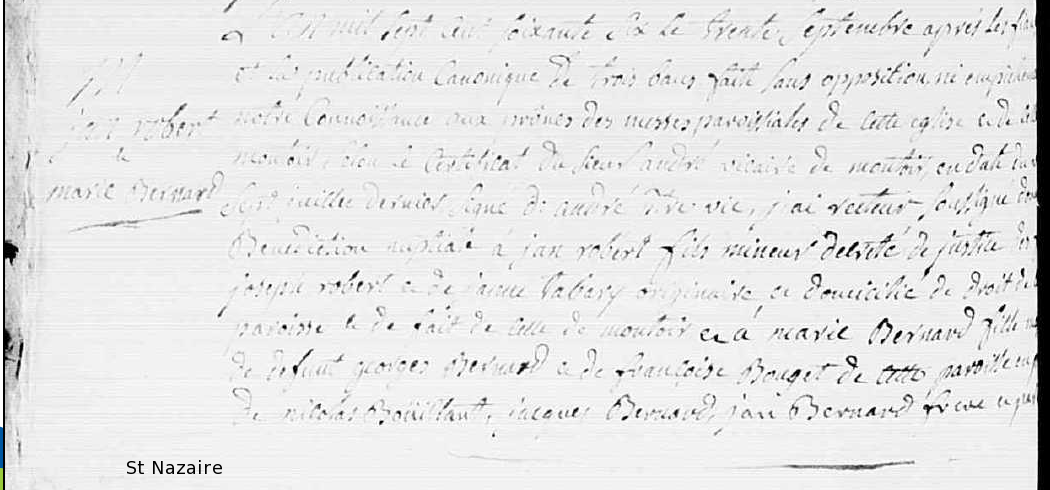 L'an mil sept cent soixante six le trente septembre apres les
et la publication Canonique de trois bans faite sans opposition, ni
notre Connoissance aux prônes des messes paroissiales de cette eglise e de
montoir, selon le Certificat du sieur andré vicaire de montoir, en date du
sept juillet dernier, signé andré vic, j'ai recteur soussigné
Benediction nuptiale à jan robert fils mineur decreté de justice
joseph robert e de janne tabary originaire e domicilié de droit de
paroisse e de fait de celle de montoir e à marie Bernard fille
de defunt georges Bernard e de françoise Bouget de cette paroisse
de nicolas Boüillant, jacques Bernard, jan Bernard frere
jan robert
e
marie Bernard
St Nazaire